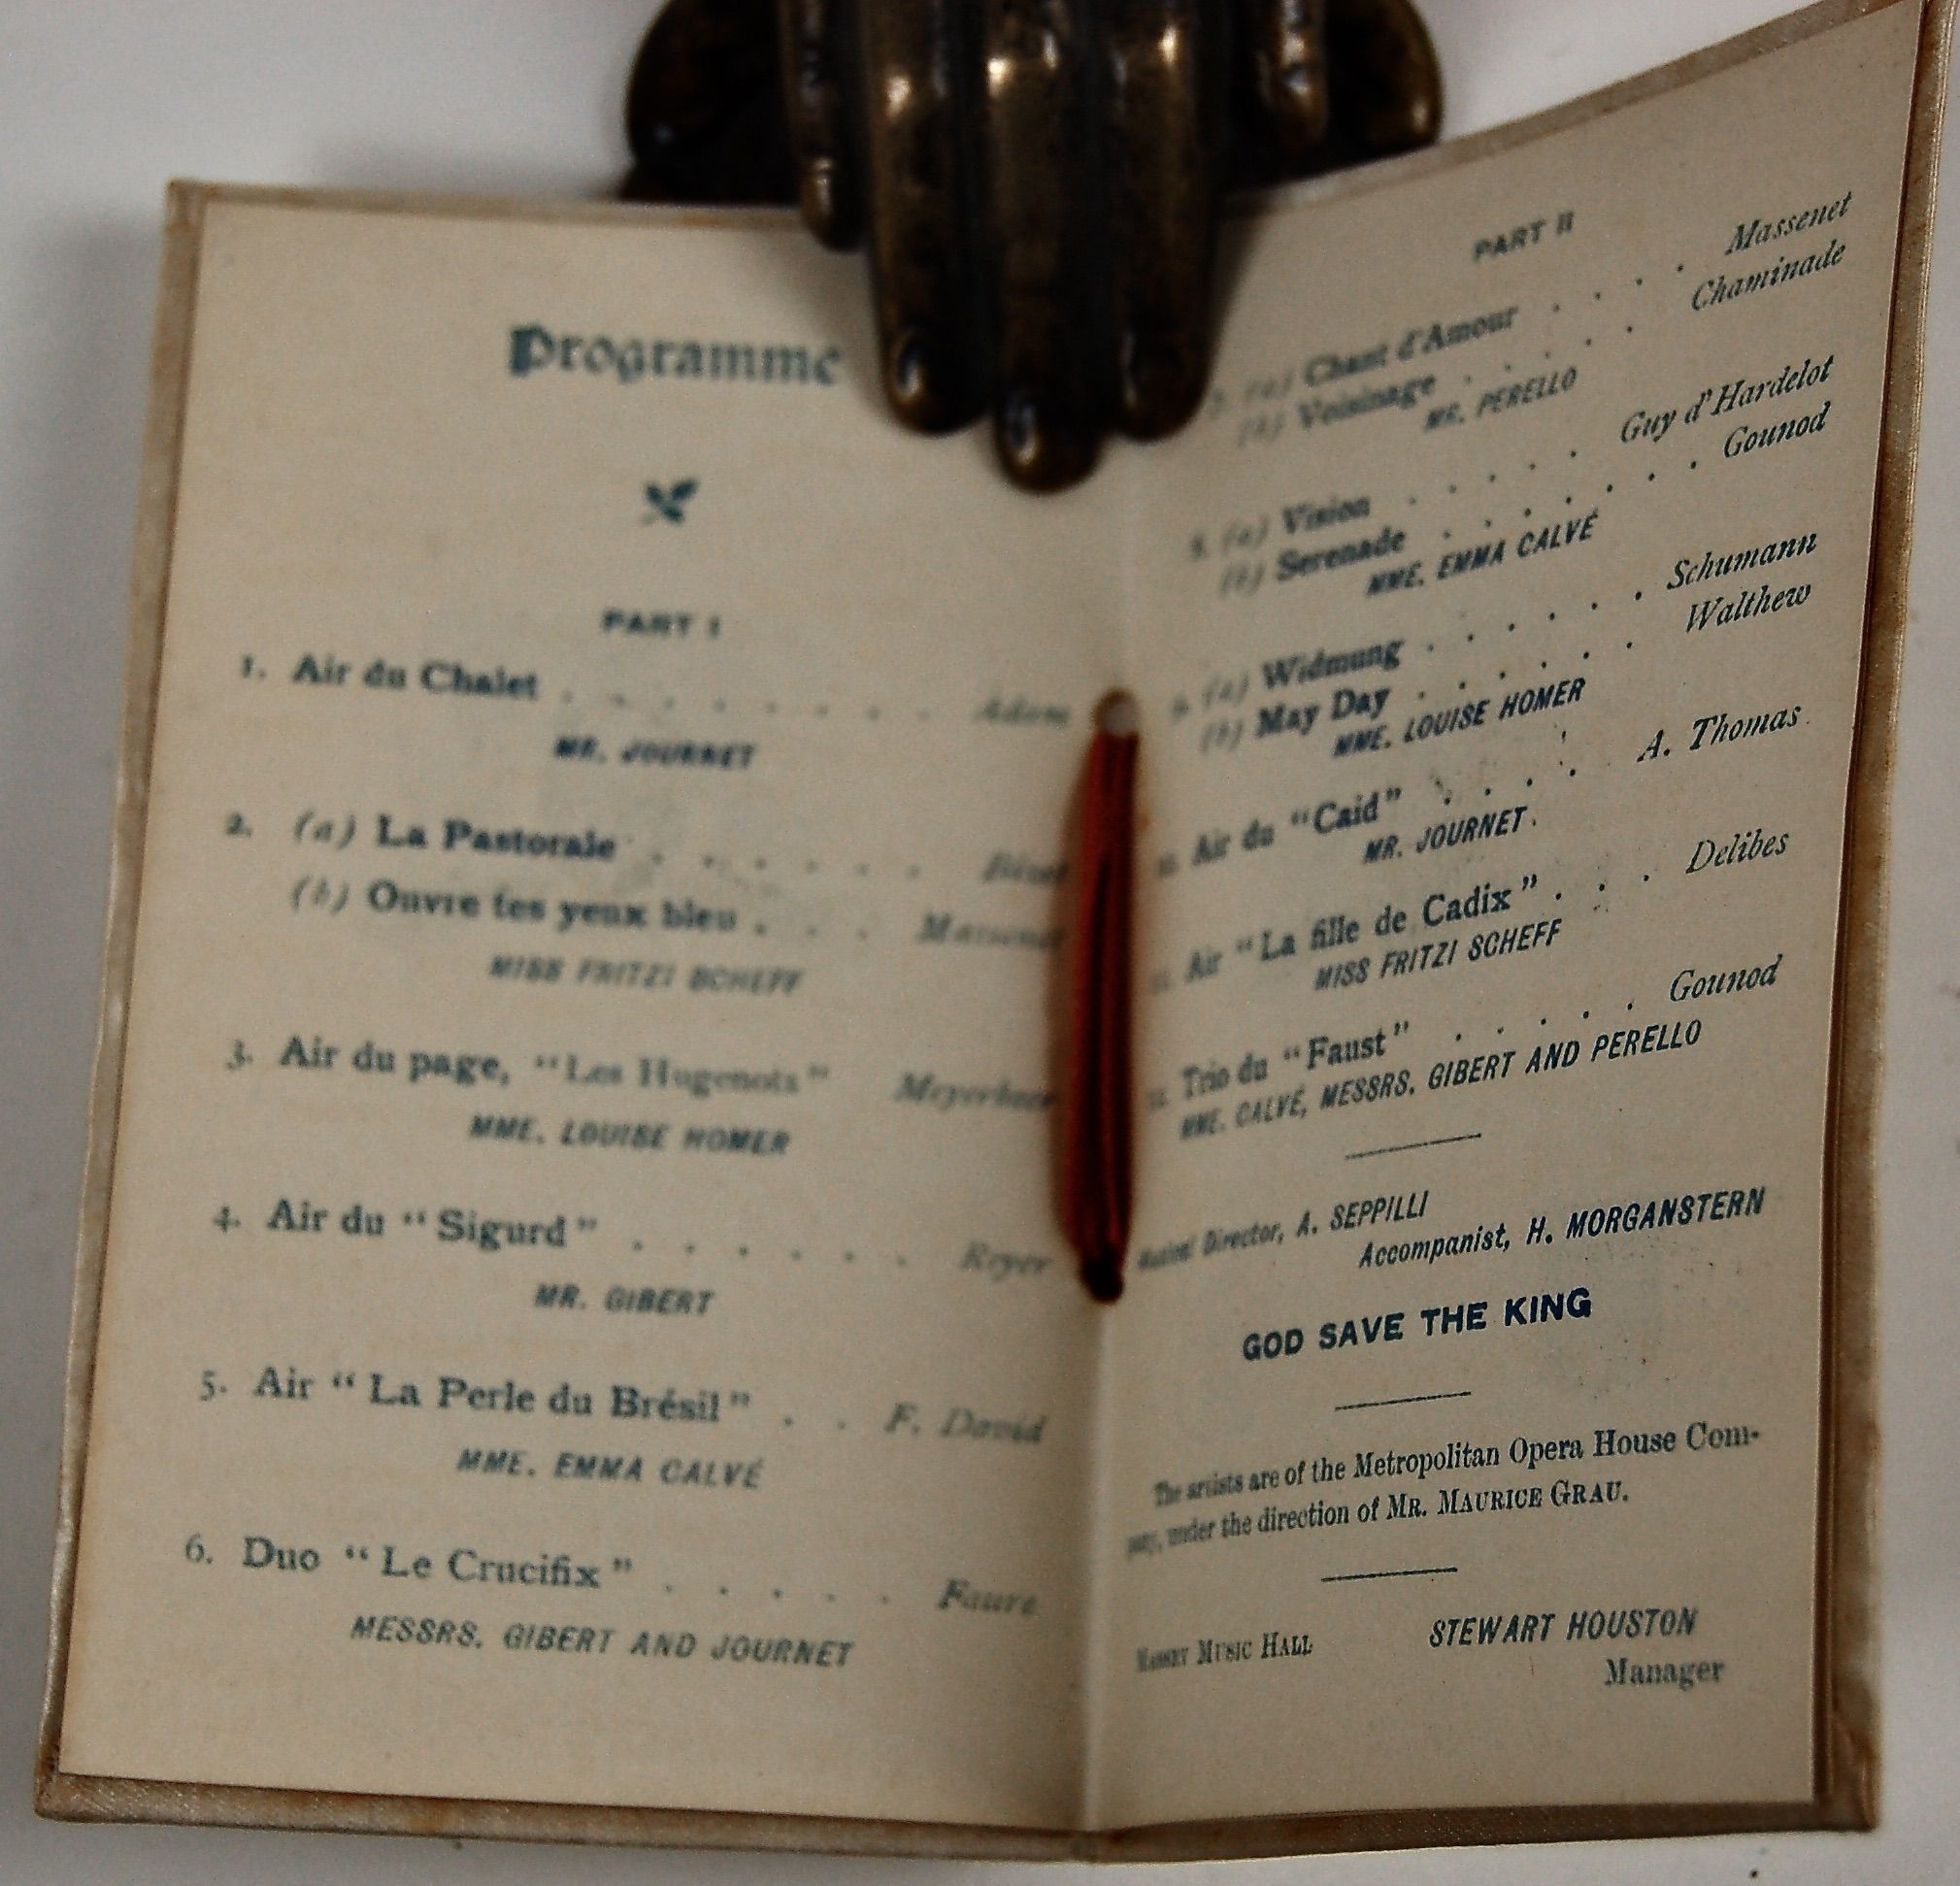 Programme
PART I
1. Air du Chalet . . . . . . . . Adam
MR. JOURNET
2. (a) La Pastorale . . . . . . Bizet
(b) Ouvre tes yeux bleu . . . Massenet
MISS FRITZI SCHEFF
3. Air du page, "Les Hugenots" Meyerbeer
MME. LOUISE HOMER
4. Air du "Sigurd" . . . . . . Reyer
MR. GIBERT
5. Air "La Perle du Brésil" . . F. David
MME. EMMA CALVÉ
6. Duo "Le Crucifix" . . . . . Faure
MESSRS. GIBERT AND JOURNET
PART II
7. (a) Chant d'Amour . . . . Massenet
(b) Voisinage . . . . . Chaminade
MR. PERELLO
8. (a) Vision . . . . . Guy d'Hardelot
(b) Serenade . . . . . . . Gounod
MME. EMMA CALVÉ
9. (a) Widmung . . . . . . Schumann
(b) May Day . . . . . . Walthew
MME. LOUISE HOMER
10. Air du "Caid" . . . . A. Thomas
MR. JOURNET
11. Air "La fille de Cadix" . . . Delibes
MISS FRITZI SCHEFF
12. Trio du "Faust" . . . . . Gounod
MME. CALVÉ, MESSRS. GIBERT AND PERELLO
Musical Director, A. SEPPILLI
Accompanist, H. MORGANSTERN
GOD SAVE THE KING
The artists are of the Metropolitan Opera House Com-
pany, under the direction of MR. MAURICE GRAU.
MASSEY MUSIC HALL STEWART HOUSTON
Manager